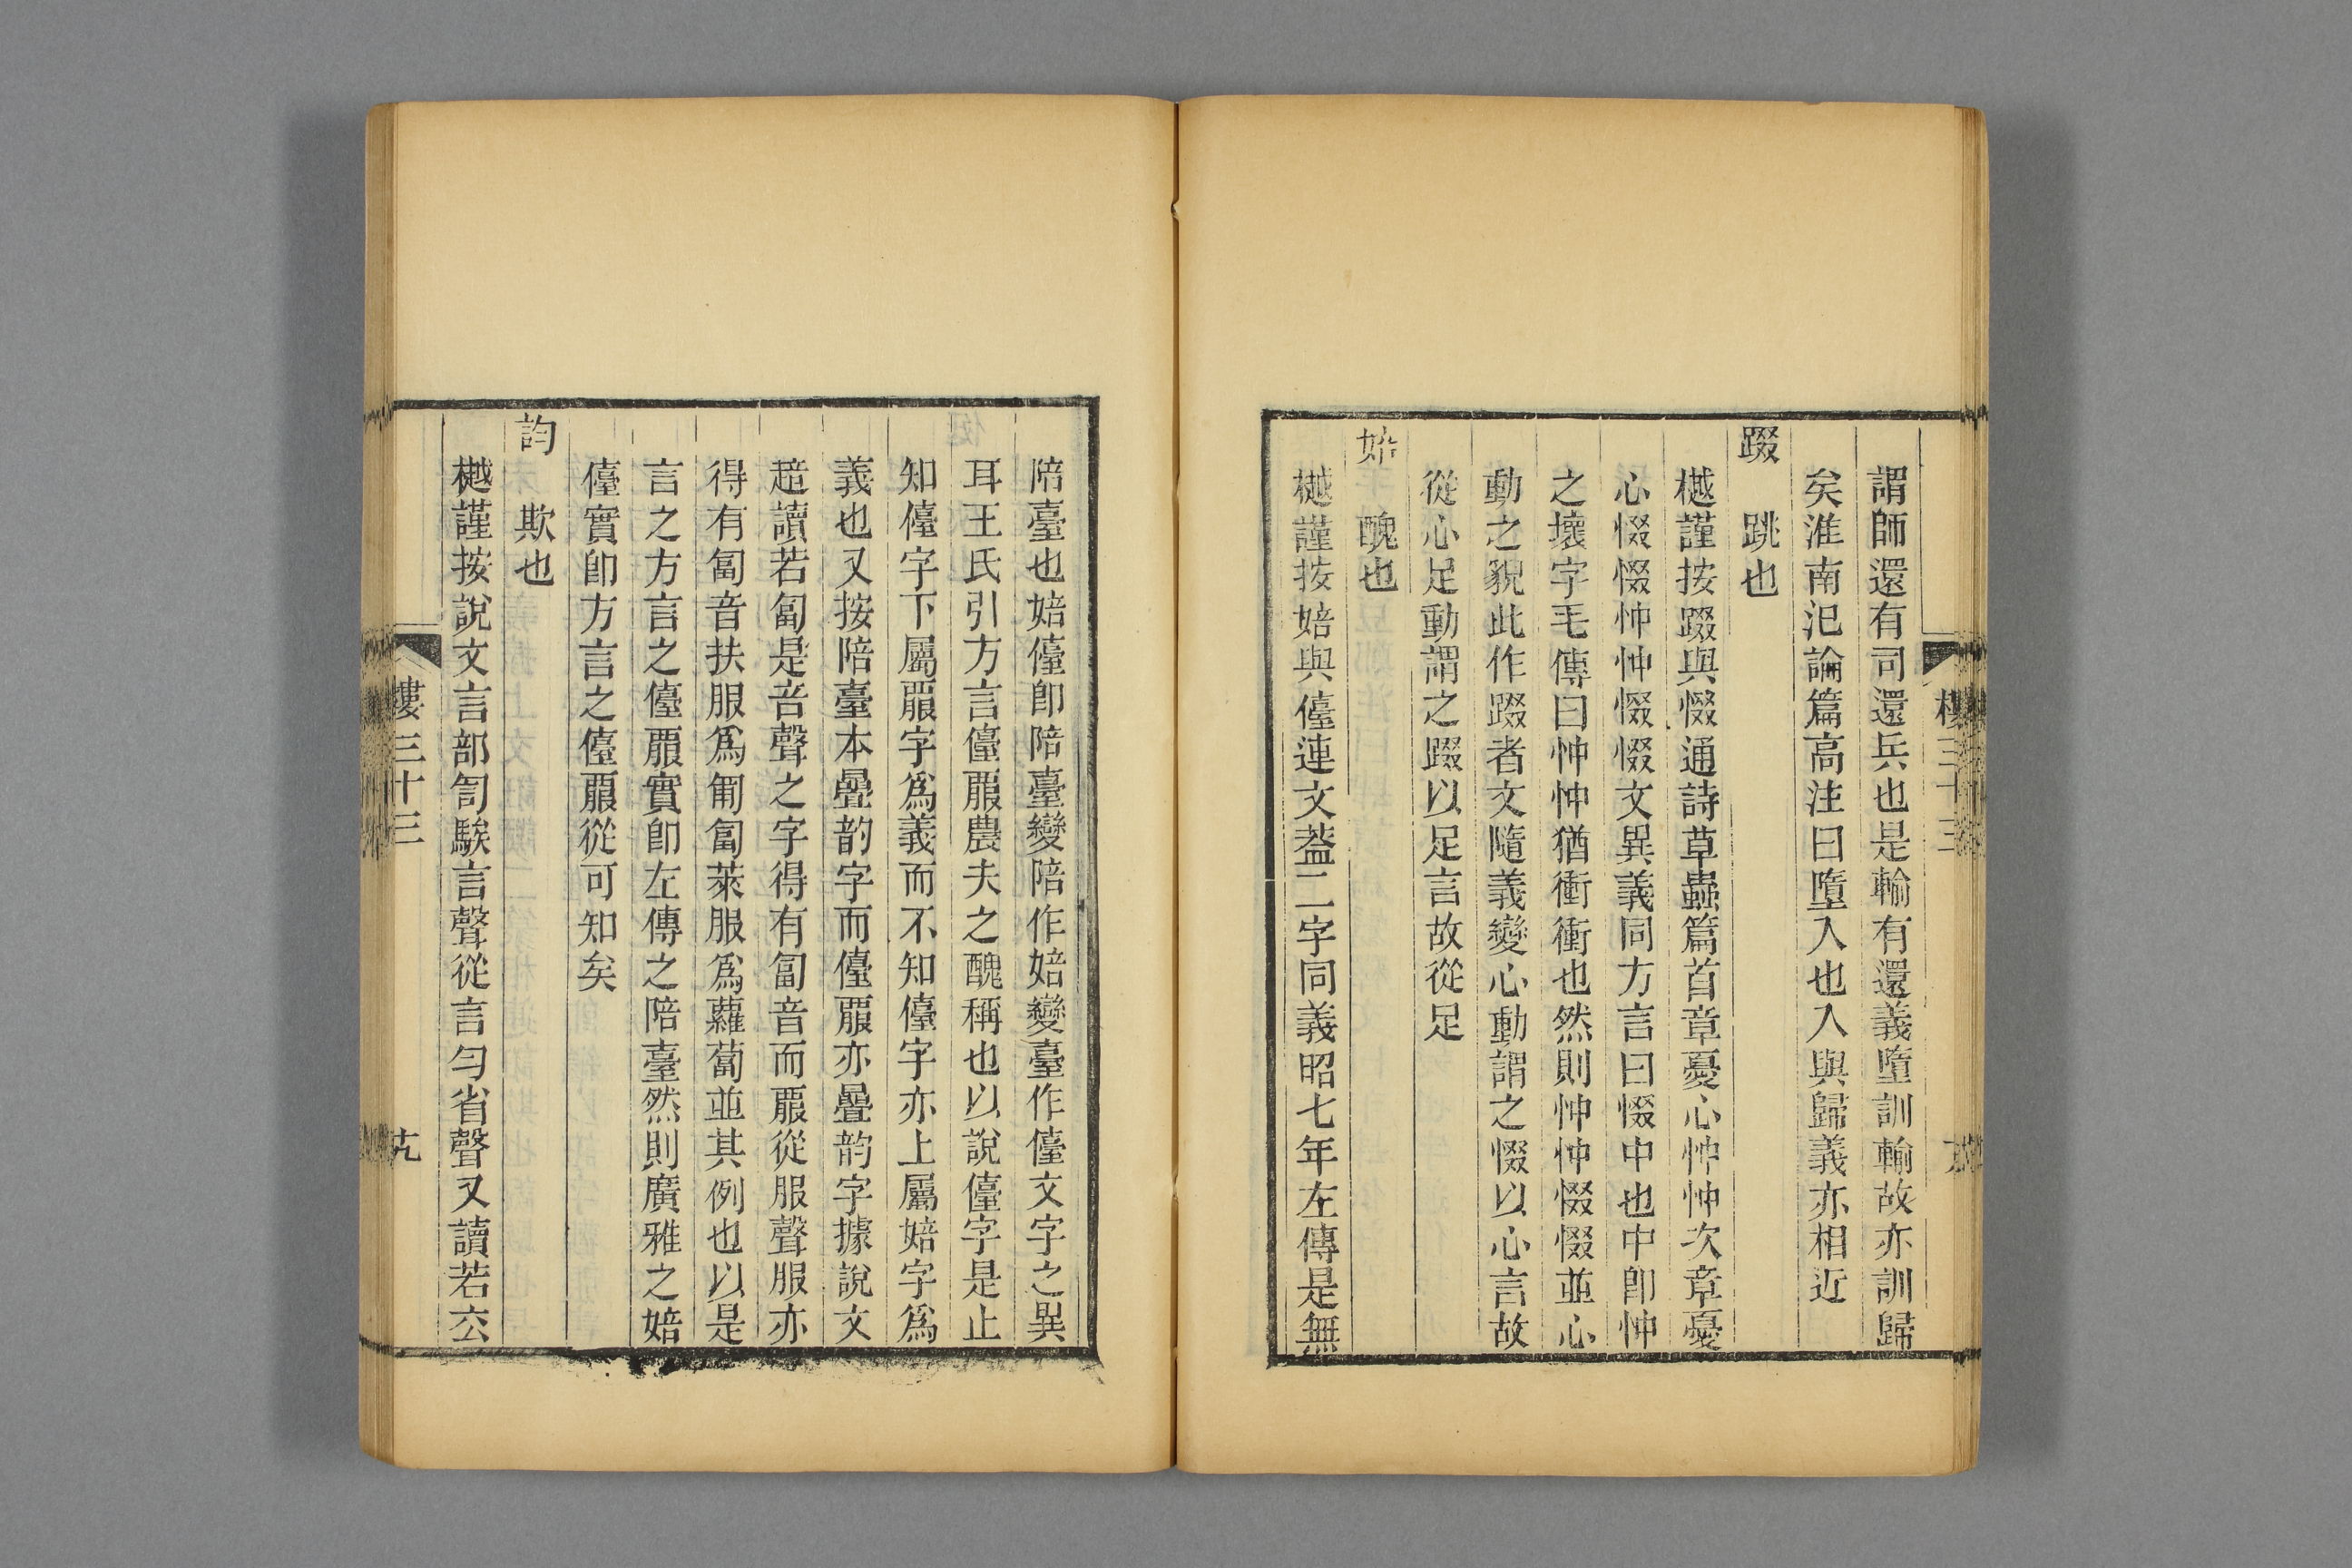 謂師還有司還兵也是輸有還義墮訓輸故亦訓歸
矣淮南汜論篇高注曰墮入也入與歸義亦相近
踀
跳也
樾謹按踀與惙通詩草蟲篇首章憂心忡忡次章憂
心惙惙忡忡惙惙文異義同方言曰惙中也中卽忡
之壞字毛傳曰忡忡猶衝衝也然則忡忡惙惙並心
動之貌此作踀者文隨義變心動謂之惙以心言故
從心足動謂之踀以足言故從足
婄
醜也
樾謹按婄與儓連文葢二字同義昭七年左傳是無
陪臺也婄儓卽陪臺變陪作婄變臺作儓文字之異
耳王氏引方言儓𧟵農夫之醜稱也以說儓字是止
知儓字下屬𧟵字爲義而不知儓字亦上屬婄字爲
義也又按陪臺本疊韵字而儓𧟵亦疊韵字據說文
趌讀若匐是咅聲之字得有匐音而𧟵從服聲服亦
得有匐音扶服爲匍匐萊服爲蘿蔔並其例也以是
言之方言之儓𧟵實卽左傳之陪臺然則廣雅之婄
儓實卽方言之儓𧟵從可知矣
訇
欺也
樾謹按說文言部訇騃言聲從言勻省聲又讀若玄
樓三十三